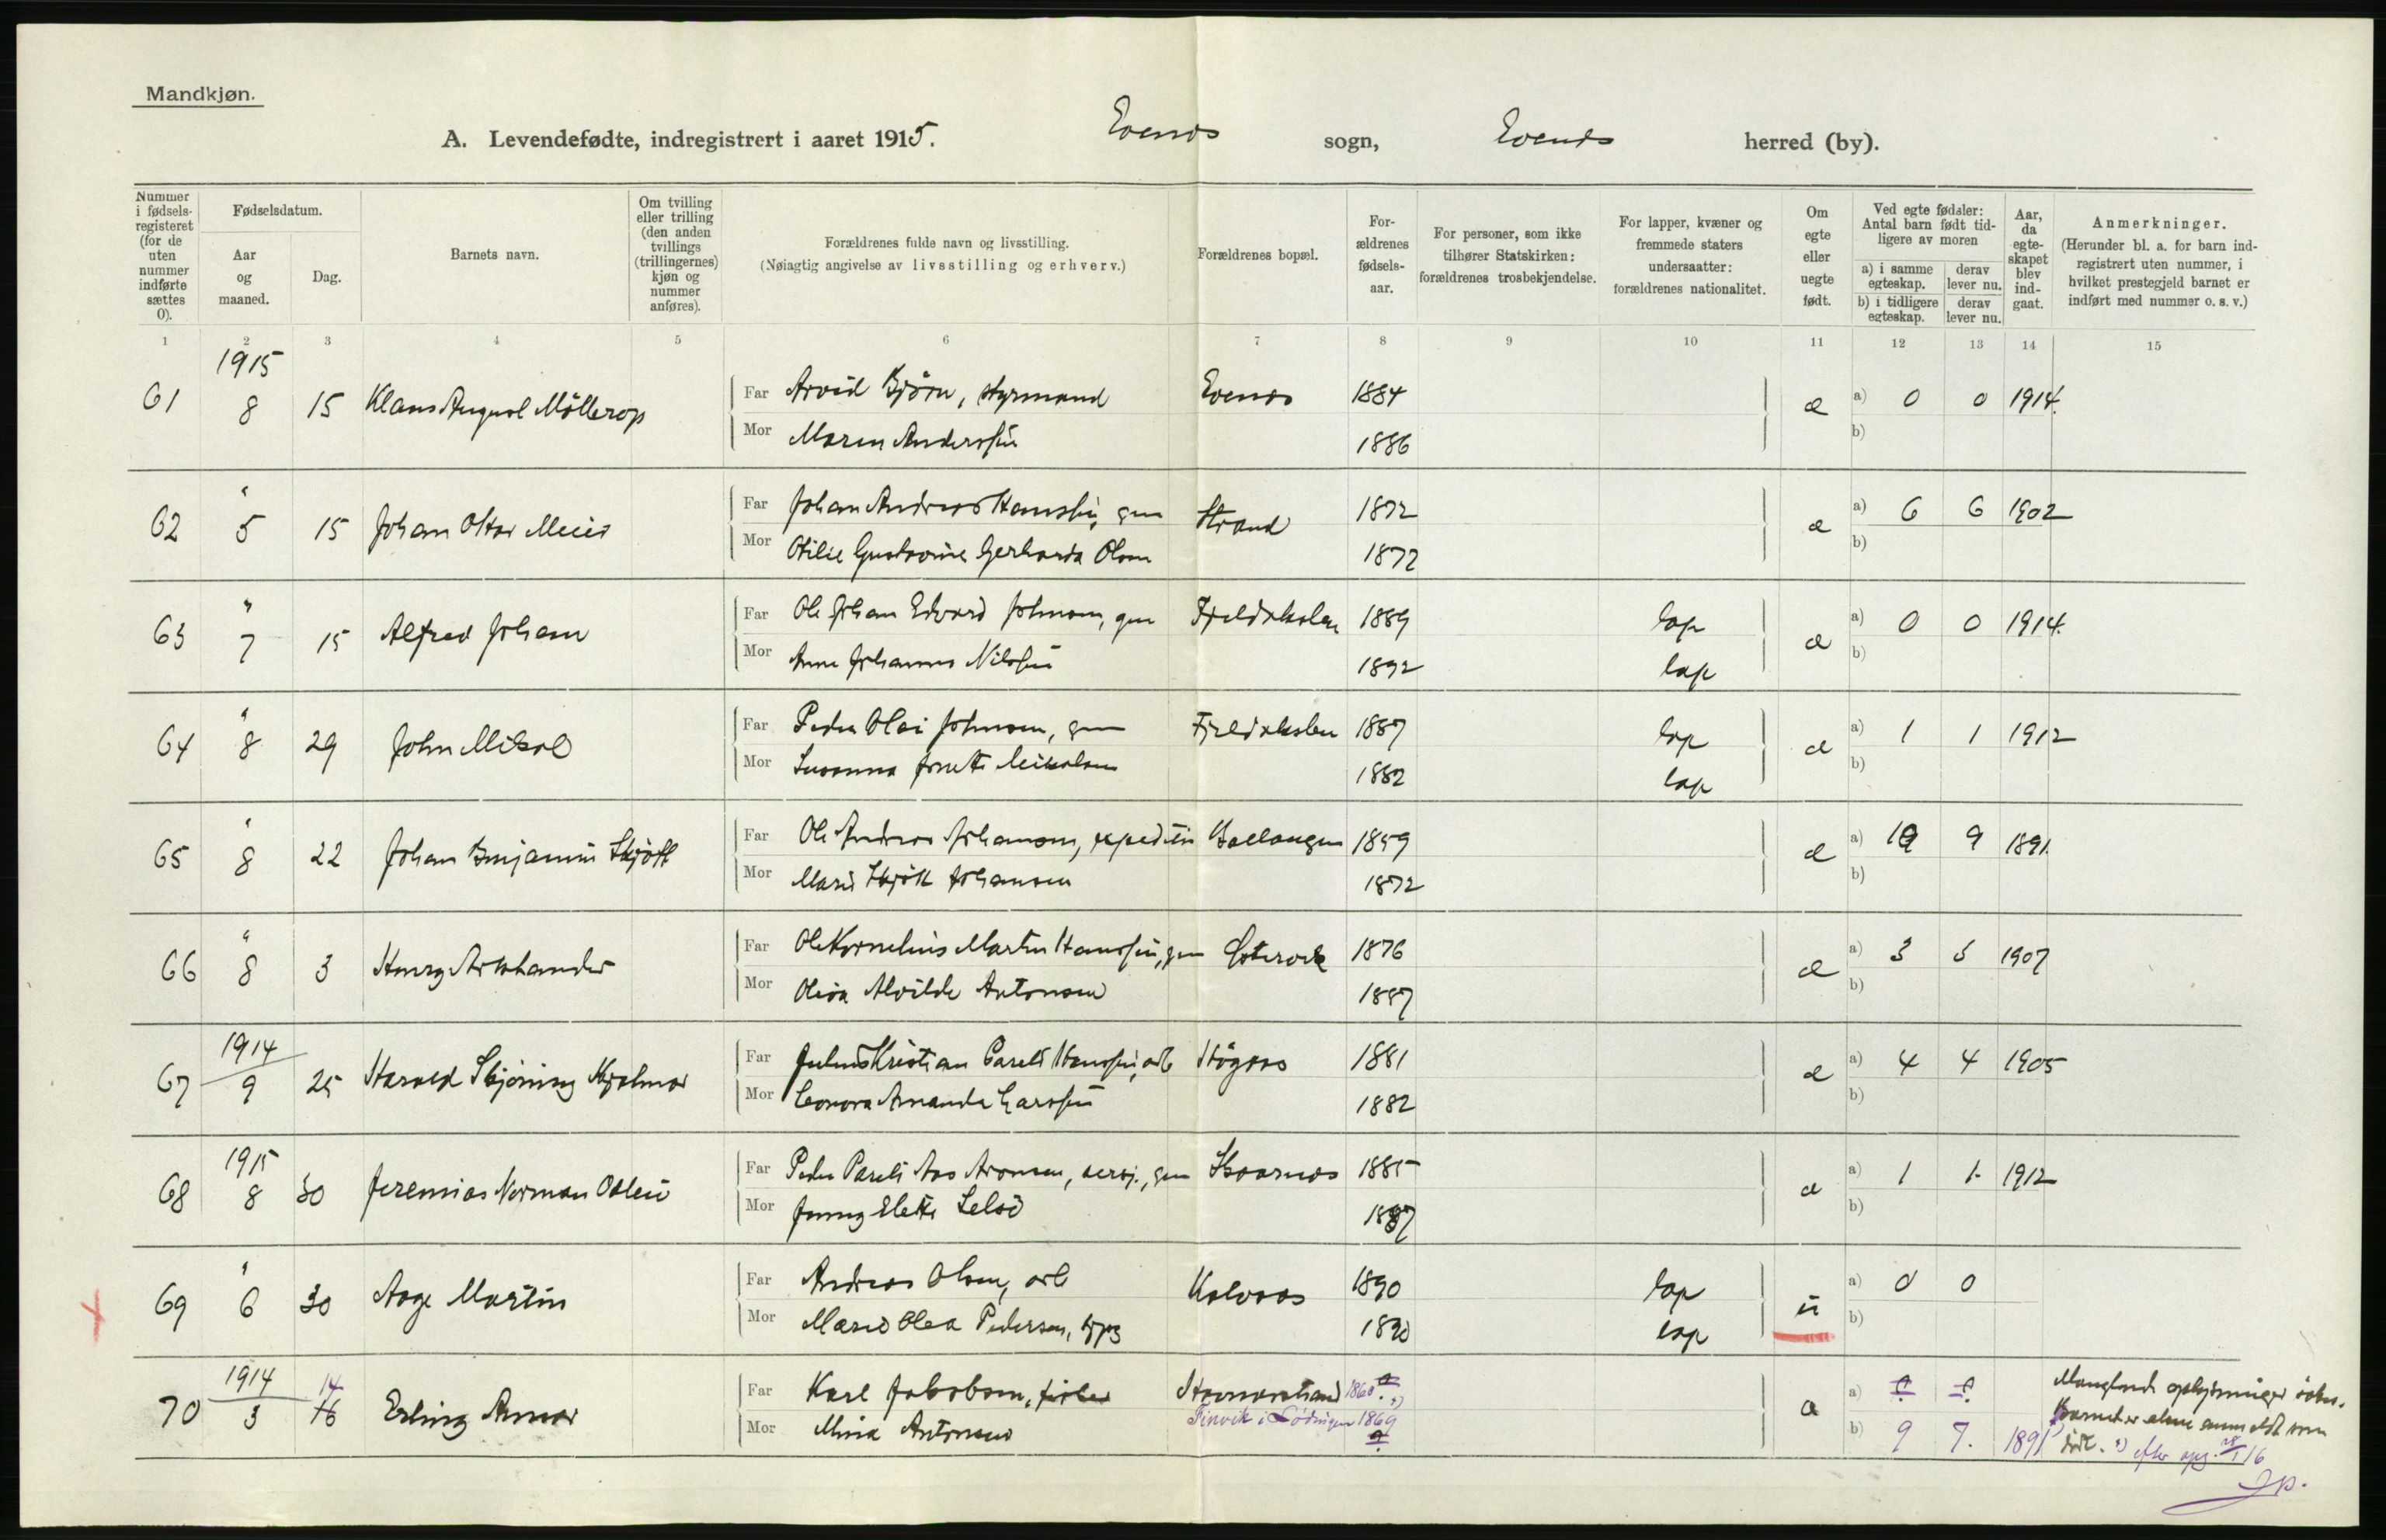 Mandkjøn.
A. Levendefødte, indregistrert i aaret 1915. Evenes sogn, Evenes herred (by).
Nummer i fødsels-registeret (for de uten nummer indførte sættes 0).
Fødselsdatum.
Aar og maaned.
Dag.
Barnets navn.
Om tvilling eller trilling (den anden tvillings (trillingernes) kjøn og nummer anføres).
Forældrenes fulde navn og livsstilling.
(Nøiagtig angivelse av livsstilling og erhverv.)
Forældrenes bopæl.
For-ældrenes fødsels-aar.
For personer, som ikke tilhører Statskirken: forældrenes trosbekjendelse.
For lapper, kvæner og fremmede staters undersaatter: forældrenes nationalitet.
Om egte eller uegte født.
Ved egte fødsler: Antal barn født tid-ligere av moren
a) i samme egteskap. derav lever nu.
b) i tidligere egteskap. derav lever nu.
Aar, da egte-skapet blev ind-gaat.
Anmerkninger.
(Herunder bl. a. for barn ind-registrert uten nummer, i hvilket prestegjeld barnet er indført med nummer o. s. v.)
1 2 3 4 5 6 7 8 9 10 11 12 13 14 15
1915
61 8 15 Klaus August Möllerop Far Arvid Björn, styrmand Evenes 1884 æ a) 0 0 1914.
Mor Maren Anderssen 1886 b)
"
62 5 15 Johan Ottar Meier Far Johan Andreas Hanssen, gm Strand 1872 æ a) 6 6 1902
Mor Otilie Gustavine Gerharda Olsen 1872 b)
"
63 7 15 Alfred Johan Far Ole Johan Edvard Johnsen, gm 1889 lap æ a) 0 0 1914.
Mor Anne Johanne Nilssen 1892 lap b)
"
64 8 29 John Mikal Far Peder Olai Johnsen, gm 1887 lap æ a) 1 1 1912
Mor Susanna 1882 lap b)
"
65 8 22 Johan Benjamin Skjött Far Ole Andreas Johansen, Ballangen 1859 æ a) 9 1891.
Mor Marie Skjött Johansen 1872 b)
"
66 8 3 Far Ole Kornelius Martin Hanssen, gm 1876 æ a) 3 3 1907
Mor Alvilde Antonsen 1887 b)
1914
67 9 25 Harald Hjalmar Far Julius Kristian Hanssen, arb 1881 æ a) 4 4 1905
Mor Leonora Amanda Larssen 1882 b)
1915
68 8 30 Jeremias Norman Far Peder Aas Aronsen, gm 1885 æ a) 1 1 1912
Mor Jenny 1887 b)
"
69 6 30 Aage Martin Far Andreas Olsen, arb 1890 lap u a) 0 0
Mor Marie Olea Pedersen, 1890 lap b)
1914 14
70 3 16 Erling Far Karl Jakobsen, fisker 1860 æ a)
Mor Mina Antonsen Finvik i Lödingen 1869 b) 9 7. 1891
Manglende oplysninger
Barnet er
efter opg. 28/1 16